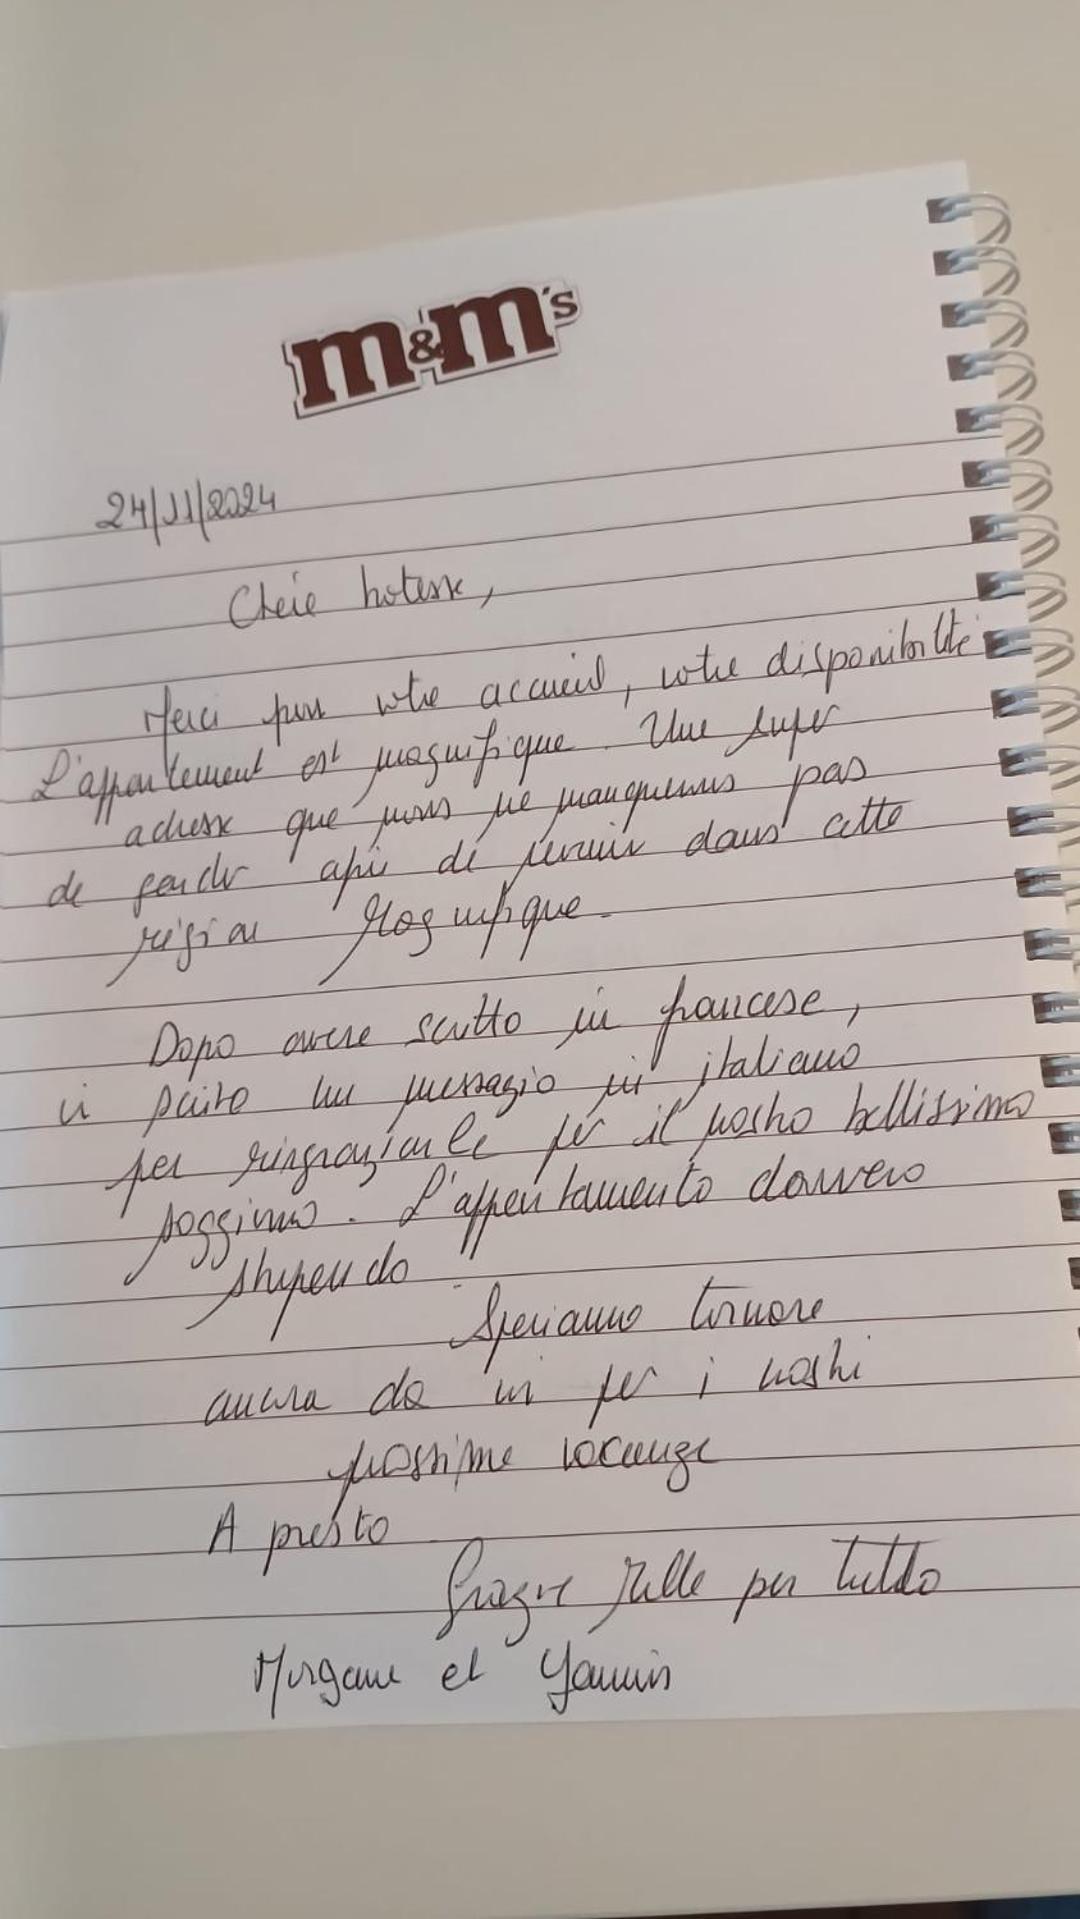 m&m's
24/11/2024
Chère hotesse,
Merci pour votre accueil, votre disponibilité
L'appartement est magnifique. Une super
adresse que nous ne manquerons pas
de garder afin de revenir dans cette
région Magnifique.
Dopo avere scritto in francese,
vi scrivo un messagio in italiano
per ringraziarle per il nostro bellissimo
soggimo. L'appartamento davvero
stupendo
Speriamo tornare
ancora da voi per i nostri
prossime vacanze
A presto
Grazie Mille per tutto
Morgane et Yannis